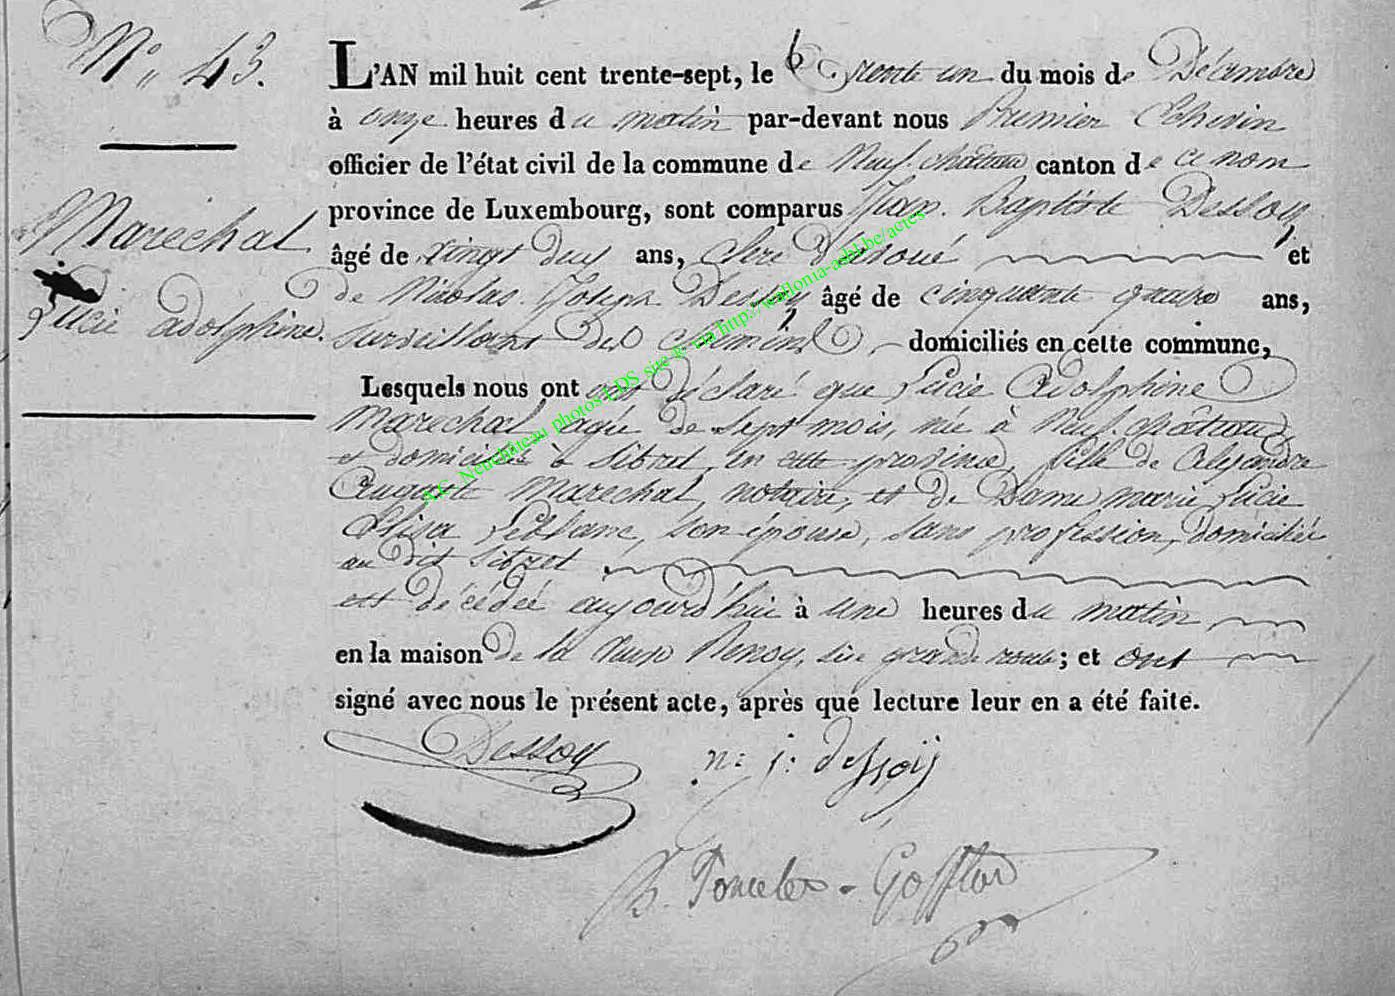 N° 43.
L'AN mil huit cent trente-sept, le trente un du mois de Décembre
à onze heures du matin par-devant nous Premier Echevin
officier de l'état civil de la commune de Neufchâteau canton de ce nom
Maréchal
province de Luxembourg, sont comparus Jean Baptiste Dessoy
âgé de vingt deux ans, Clerc d'avoué et
Lucie adolphine.
de Nicolas Joseph Dessoy âgé de cinquante quatre ans,
surveillant des Chemins domiciliés en cette commune,
Lesquels nous ont déclaré que Lucie Adolphine
Marechal agée de sept mois née à Neufchâteau
et domiciliée à Sibret en cette province, fille de Alexandre
Auguste Marechal, notaire, et de Dame marie Lucie
Elisa Leblanc, son épouse, sans profession, domiciliés
au dit Sibret
est décédée aujourd'hui à une heures du matin
en la maison de la veuve Renoy, sise grande route; et ont
signé avec nous le présent acte, après que lecture leur en a été faite.
Dessoy
n: j: dessoÿ
Poncelet - Gofflot
A.C. Neufchâteau photos LDS site © via http://wallonia-asbl.be/actes